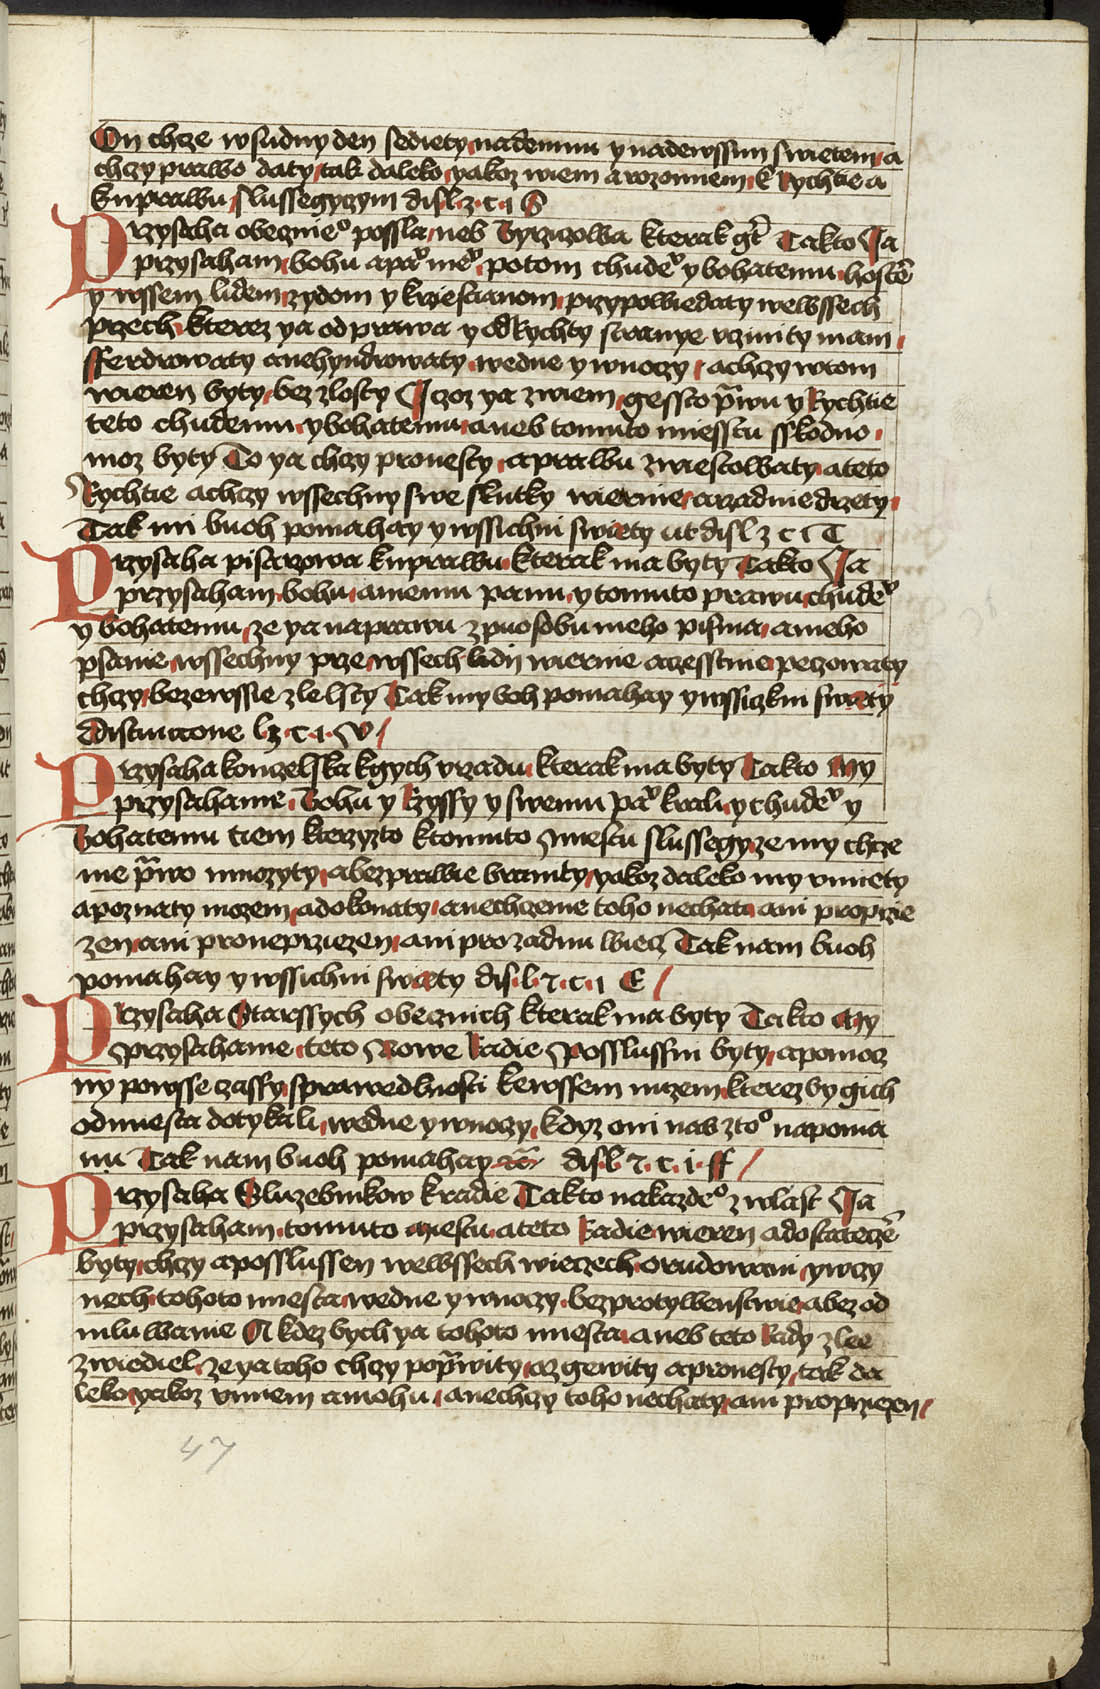 On chcze wsudny den sediety nademnu y nadewssim swietem a
chczy prawo daty tak daleko yakoz wiem a rozomiem k Rychtie a
kuprawu slussegyczym disl z c i S
Przysaha obeznieº possla neb Byrziczowa kterak gt Takto Ja
przysaham bohu a pa meº potom chudeº y bohatemu hoste
y wssem lidem zydom y krziestianom przypowiedaty wewssech
przech kterez ya od prawa y od Rychty stranye vcziniti mam
fferdrowaty a nehyndrowaty wedne y wnoczy a chczy wtom
wieren byty bez zlosty Jczoz ya zwiem gessto prawu y Rychtie
teto chudemu y bohatemu aneb tomuto miestu sskodno
moz byty To ya chczy pronesty a prawu zwiestowaty a teto
Rychtie a chczy wssechny swe skutky wiernie a rzadnie drzety
Tak mi buoh pomahay y wssichni swiety ut disl z c i T
Przysaha pisarzowa kuprawu kterak ma byty Takto Ja
przysaham bohu a memu panu y tomuto prawu chudeº
y bohatemu ze ya naprawu zpuosobu meho pisma a meho
psanie wssechny prze wssech lidij wiernie a czesstnie peczowaty
chczy bezewssie zlelsty Tak my boh pomahay y wssiczkni swatij
Distinctone lz c i V
Przysaha konzelska kgych vrzadu kterak ma byty Takto My
przysahame Bohu y Rzyssy y swemu paº krali y chudeº y
Bohatemu tiem kterzyzto ktomuto Miestu slussegy ze my chcze
me prawo mnozyty a bezprawie braniti yakoz daleko my vmiety
a poznaty mozem a dokonaty a nechczeme toho nechati ani proprzie
zen ani proneprziezen ani pro zadnu wiecz Tak nam buoh
pomahay y wssichni swaty disl l z c i E
Przysaha Starssych obecznich kterak ma byty Takto My
przysahame teto Nowe Radie Posslussni byty a pomocz
ny powsse czassy sprawedlnosti kewssem nuzem kterez by gich
odmiesta dotykali wedne y wnoczy kdyz oni nas ztoº napoma
nu Tak nam buoh pomahay disl l z c i ff
Przysaha Sluzebnikow kradie Takto nakazdeº zwlast Ja
przysaham tomuto Miestu a teto Radie wieren a dostatecze
byty chczy a posslussen wewssech wieczech orudowani y wczy
nech tohoto miesta wedne y wnoczy bezprotywenstwie a bez od
mluwanie A kdez bych ya tohoto miesta aneb teto Rady zlee
zwiediel ze ya toho chczy poprawity a zgewity a pronesty tak da
leko yakoz vmiem a mohu a nechczy toho nechaty ani proprziezen
47